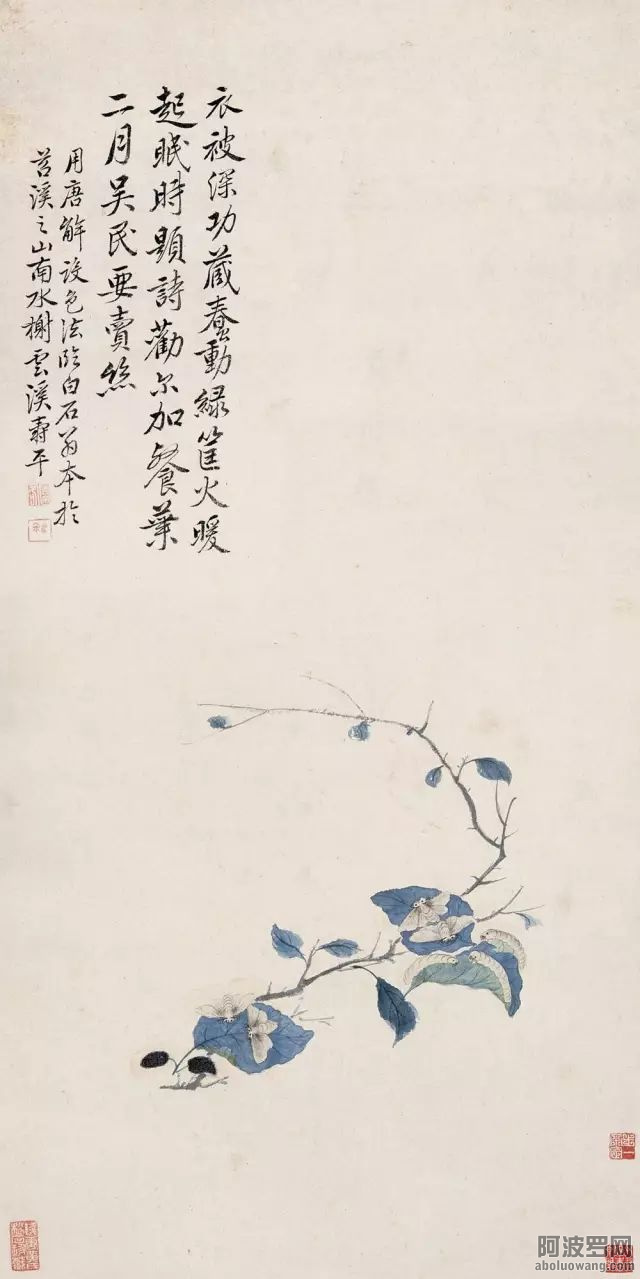 衣被深功藏蠢動綠筐火暖
起眠時題詩勸尔加餐葉
二月吴民要賣絲
用唐解設色法臨白石翁本於
苕溪之山南水榭雲溪壽平
阿波罗网
aboluowang.com